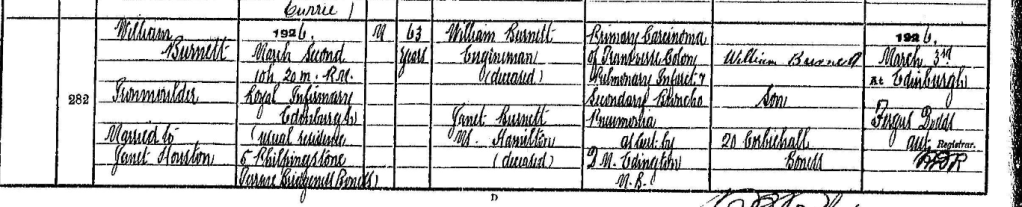 Currie
282
William
Burnett
Ironmoulder
Married to
Janet Houston
1926.
March Second
10h. 20m. P.M.
Royal Infirmary
Edinburgh
(usual residence
5 Philpingstone
Terrace Bridgeness Boness)
M
63
years
William Burnett
Engineman
(deceased)
Janet Burnett
M.S. Hamilton
(deceased)
Primary Carcinoma
of Transverse Colon
Pulmonary Infarct &
Secondary Broncho
Pneumonia
as cert by
D M. Edington
M.B.
William Burnett
Son
20 Corbiehall
Boness
1926.
March 3rd
At Edinburgh
Fergus Dodds
Registrar.
D